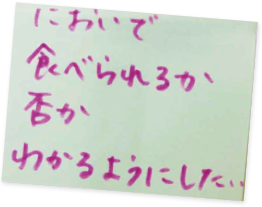 においで
食べられるか
否か
わかるようにしたい